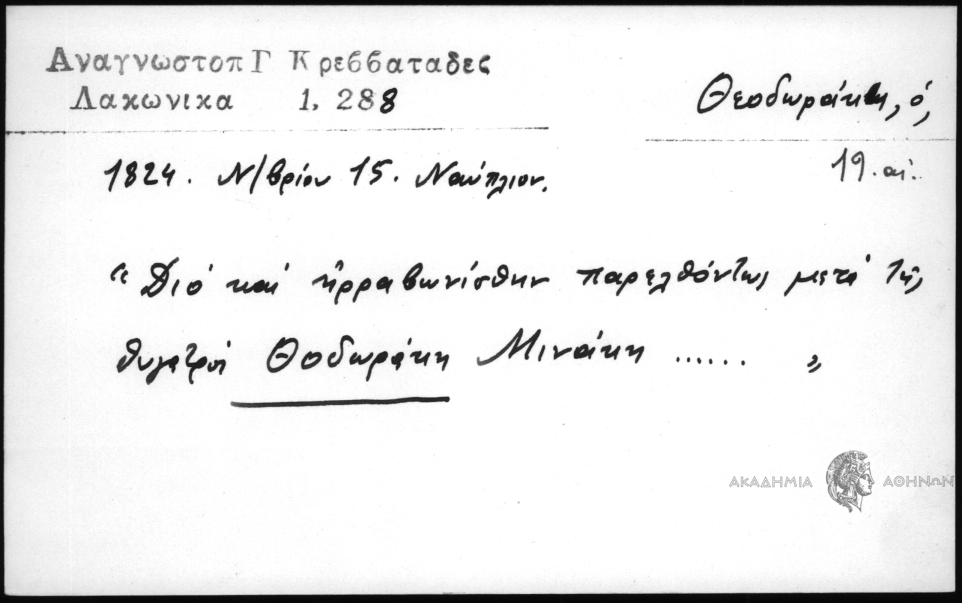 Αναγνωστοπ Γ Κρεββαταδες
Λακωνικα 1, 288
Θεοδωράκη, ό,
19. αἰ.
1824. Ν/βρίου 15. Ναύπλιον.
“ Διό καί ἠρραβωνίσθην παρελθόντως μετά τῆς
θυγατρός Θοδωράκη Μινάκη ...... „
ΑΚΑΔΗΜΙΑ ΑΘΗΝΩΝ